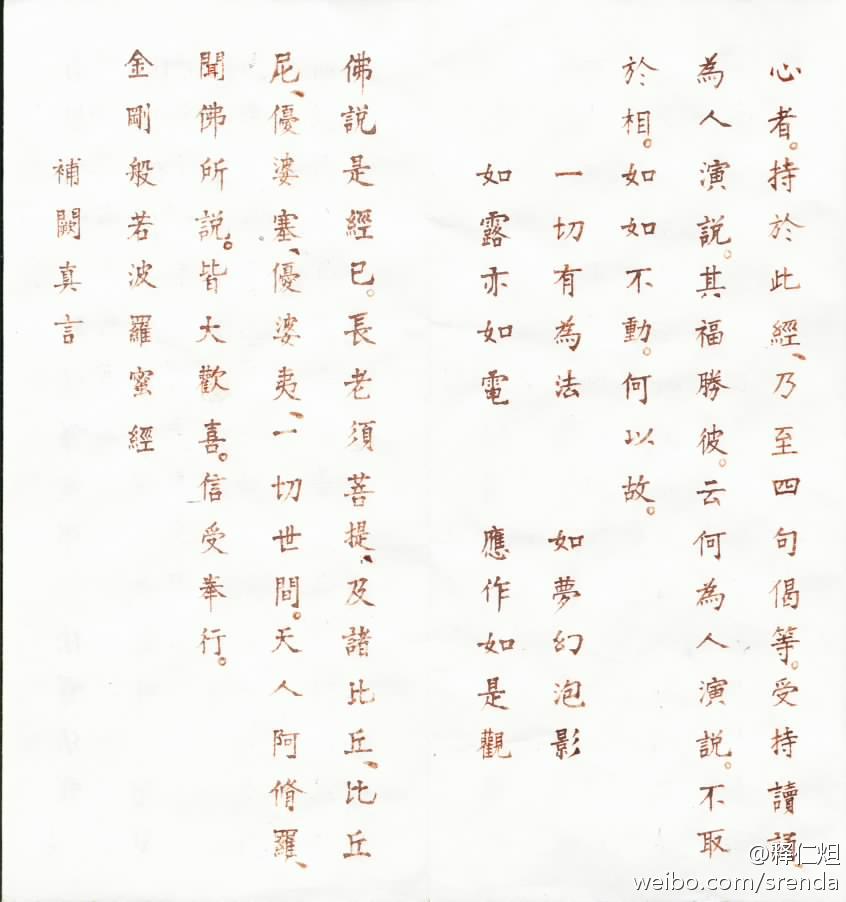 心者。持於此經、乃至四句偈等。受持讀誦、
為人演說。其福勝彼。云何為人演說。不取
於相。如如不動。何以故。
一切有為法 如夢幻泡影
如露亦如電 應作如是觀
佛說是經已。長老須菩提、及諸比丘、比丘
尼、優婆塞、優婆夷、一切世間。天人阿脩羅、
聞佛所說。皆大歡喜。信受奉行。
金剛般若波羅蜜經
補闕真言
@释仁炟
weibo.com/srenda